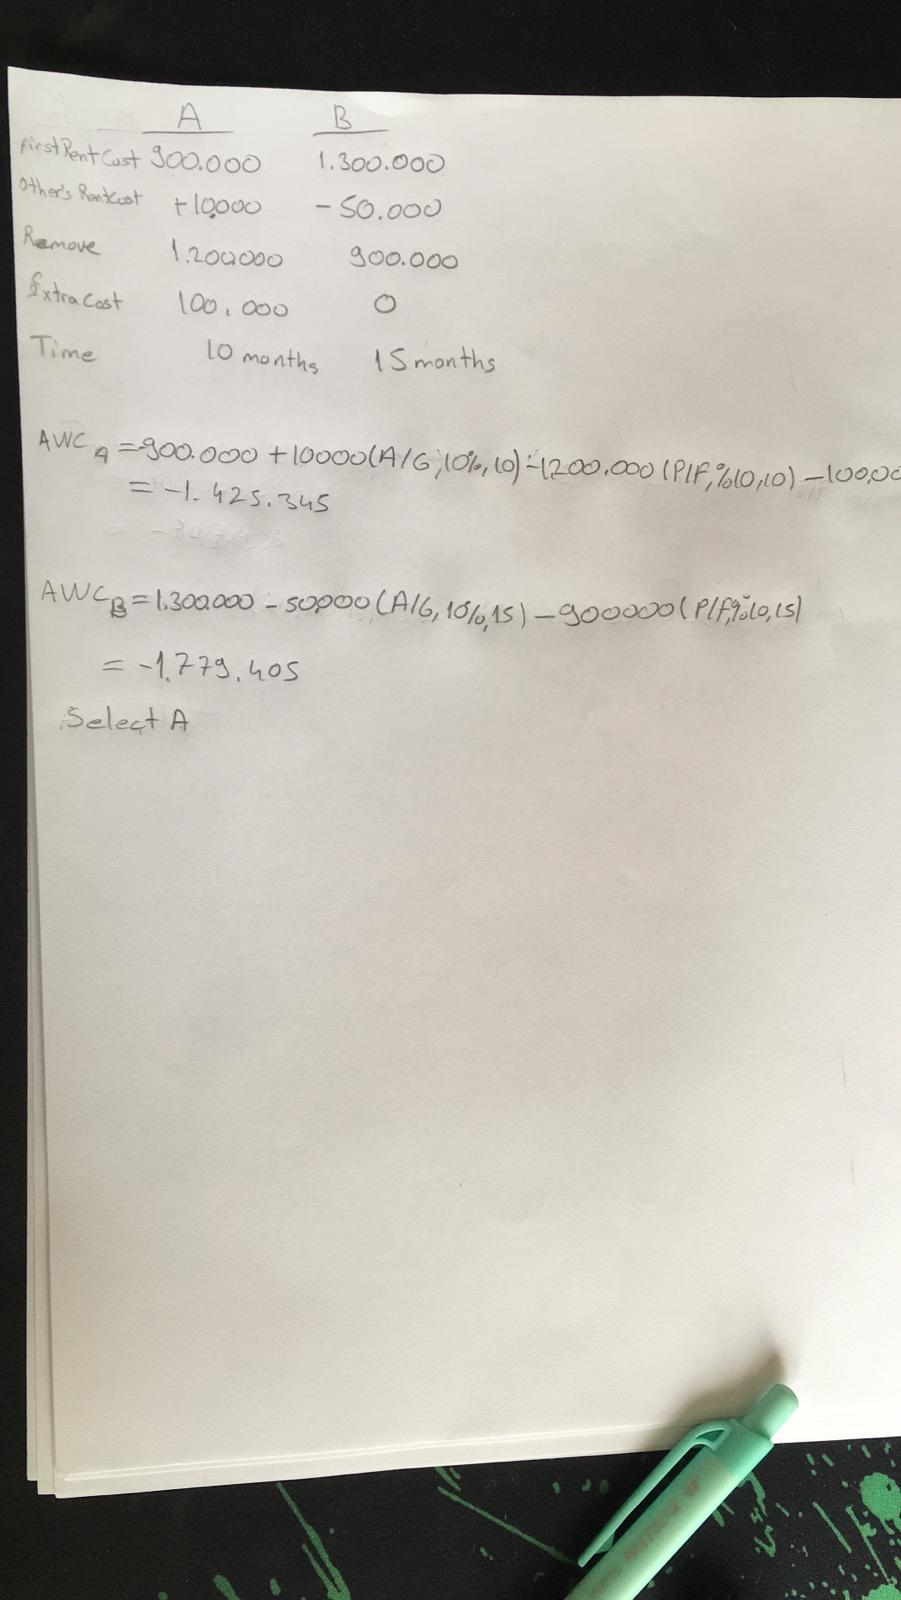 A B
First Rent Cost 900.000 1.300.000
Other's Rent Cost +10.000 -50.000
Remove 1.200.000 900.000
Extra Cost 100.000 0
Time 10 months 15 months
AWC A =-900.000 +10000(A/G,10%,10)-1200.000(P/F,%10,10) -100,00
= -1.425.345
AWC B =1.300.000 -50000(A/G,10%,15) -900000(P/F,%10,15)
= -1.779.405
Select A